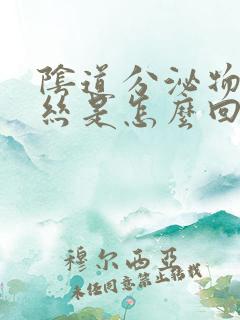 陰道分泌物
絲是怎麼回
穆尔西亚
未经同意禁止转载